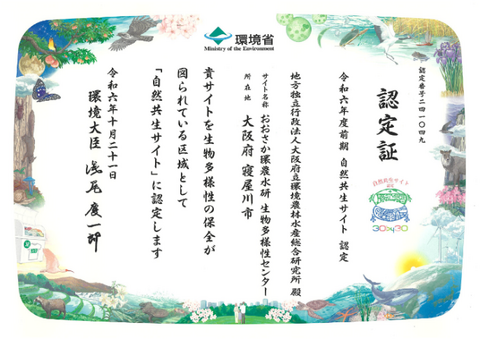 環境省
Ministry of the Environment
認定番号二四一〇四九
認定証
令和六年度前期 自然共生サイト 認定
地方独立行政法人大阪府立環境農林水産総合研究所 殿
サイト名称 おおさか環農水研 生物多様性センター
所在地 大阪府 寝屋川市
貴サイトを生物多様性の保全が
図られている区域として
「自然共生サイト」に認定します
令和六年十月二十一日
環境大臣 浅尾慶一郎
自然共生サイト
30by30